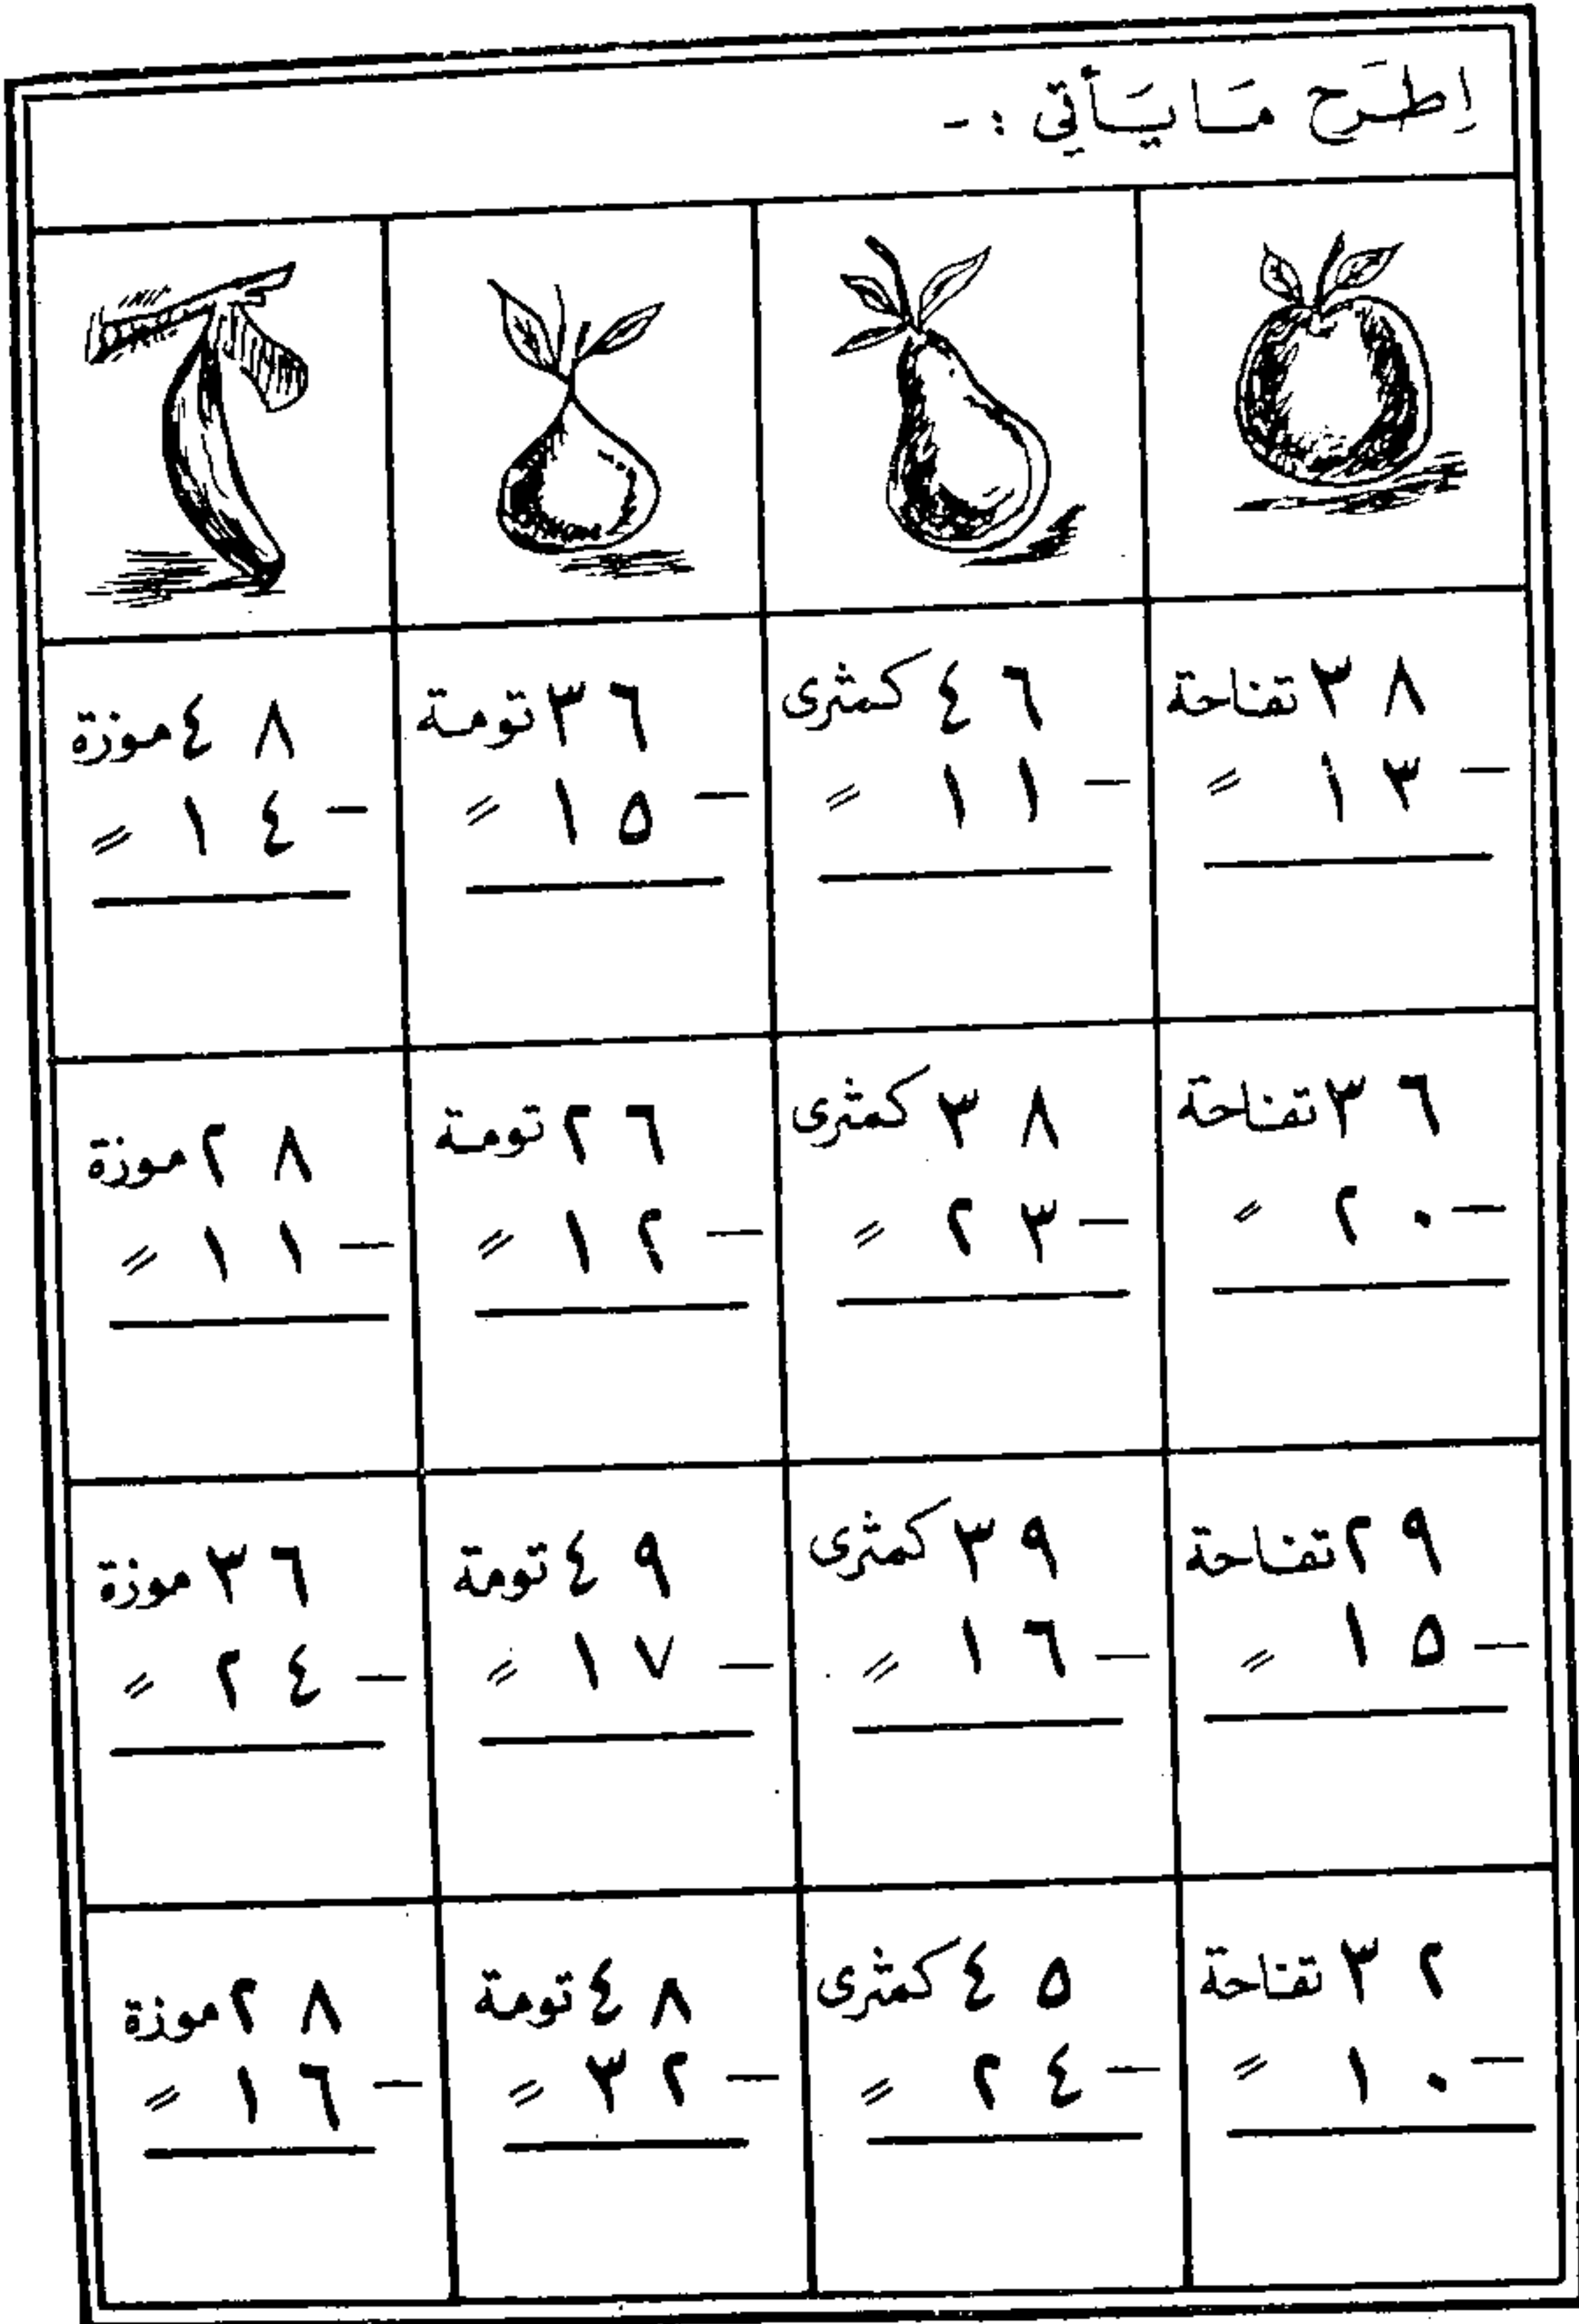 اِطرَح مَا يَأتي :-
٣٨ تفاحة
- ١٣ 〃
٤٦ كمثرى
- ١١ 〃
٣٦ تومة
- ١٥ 〃
٤٨ موزة
- ١٤ 〃
٣٦ تفاحة
- ٢٠ 〃
٣٨ كمثرى
- ٢٣ 〃
٢٦ تومة
- ١٢ 〃
٢٨ موزة
- ١١ 〃
٢٩ تفاحة
- ١٥ 〃
٣٩ كمثرى
- ١٦ 〃
٤٩ تومة
- ١٧ 〃
٣٦ موزة
- ٢٤ 〃
٣٢ تفاحة
- ١٠ 〃
٤٥ كمثرى
- ٢٤ 〃
٤٨ تومة
- ٣٢ 〃
٢٨ موزة
- ١٦ 〃